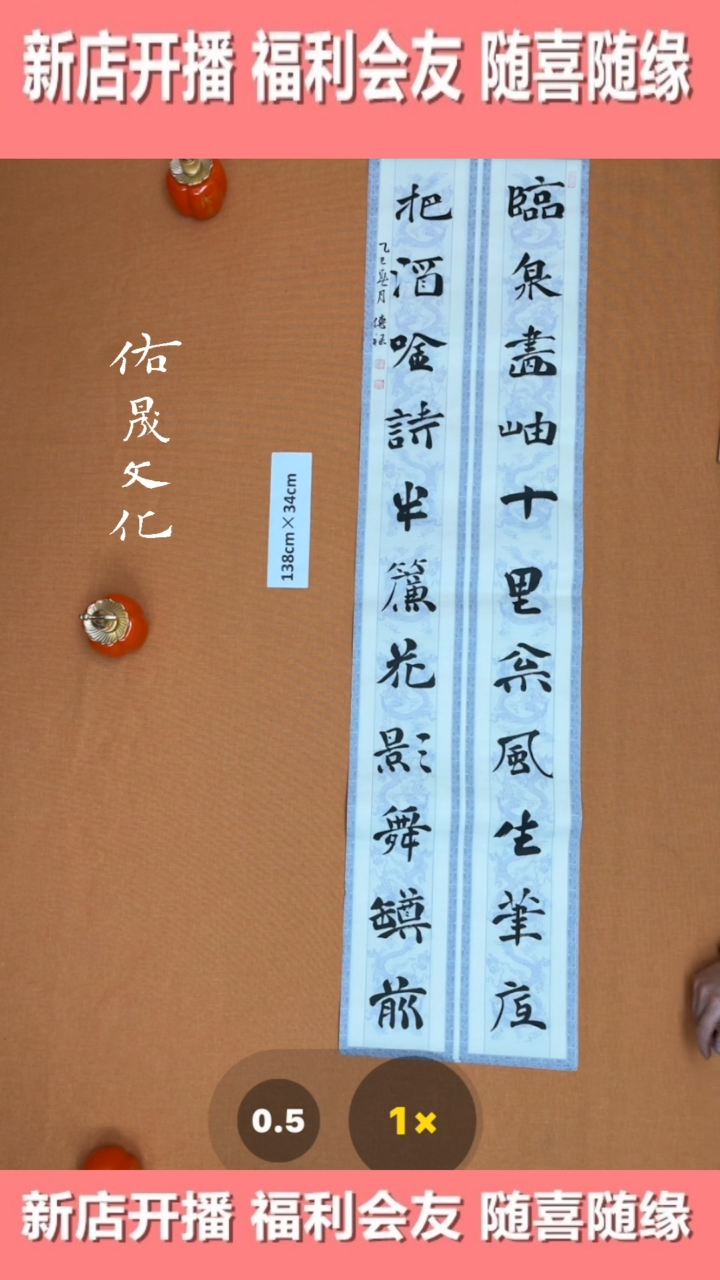 新店开播 福利会友 随喜随缘
臨泉畫岫十里枀風生筆底
把酒唫詩半簾花影舞罇前
乙巳月
佑晟文化
138cm×34cm
0.5 1×
新店开播 福利会友 随喜随缘